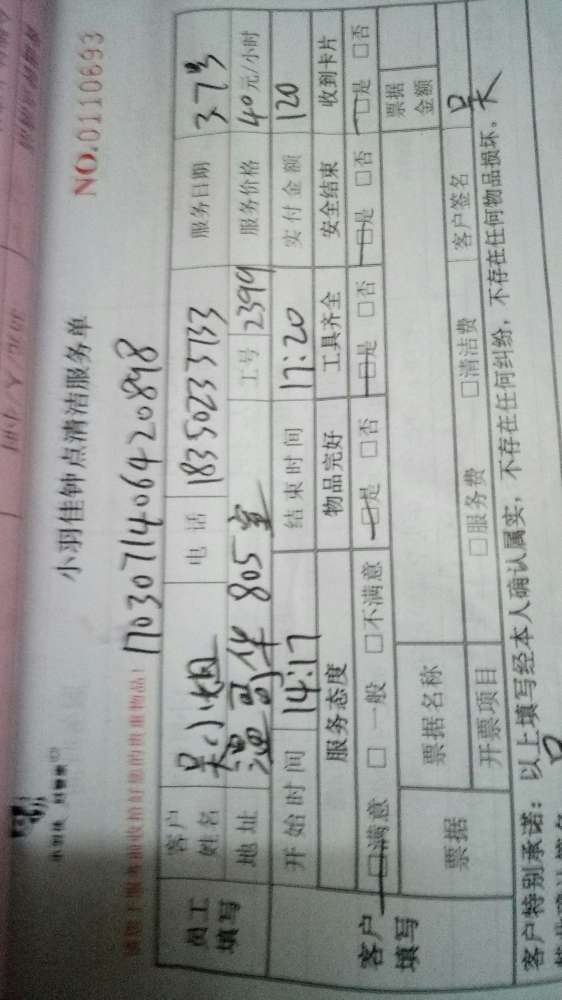 小羽佳钟点清洁服务单
NO.0110693
1703071406420898
客户姓名 吴小姐 电话 18350233733 服务日期 3.7号
员工填写
地址 温哥华 805室 工号 2399 服务价格 40元/小时
开始时间 14:17 结束时间 17:20 实付金额 120
服务态度 物品完好 工具齐全 安全结束 收到卡片
客户填写
□满意 □一般 □不满意 □是 □否 □是 □否 □是 □否 □是 □否
票据 票据名称 票据金额
开票项目 □服务费 □清洁费 客户签名 吴
客户特别承诺：以上填写经本人确认属实，不存在任何纠纷，不存在任何物品损坏。